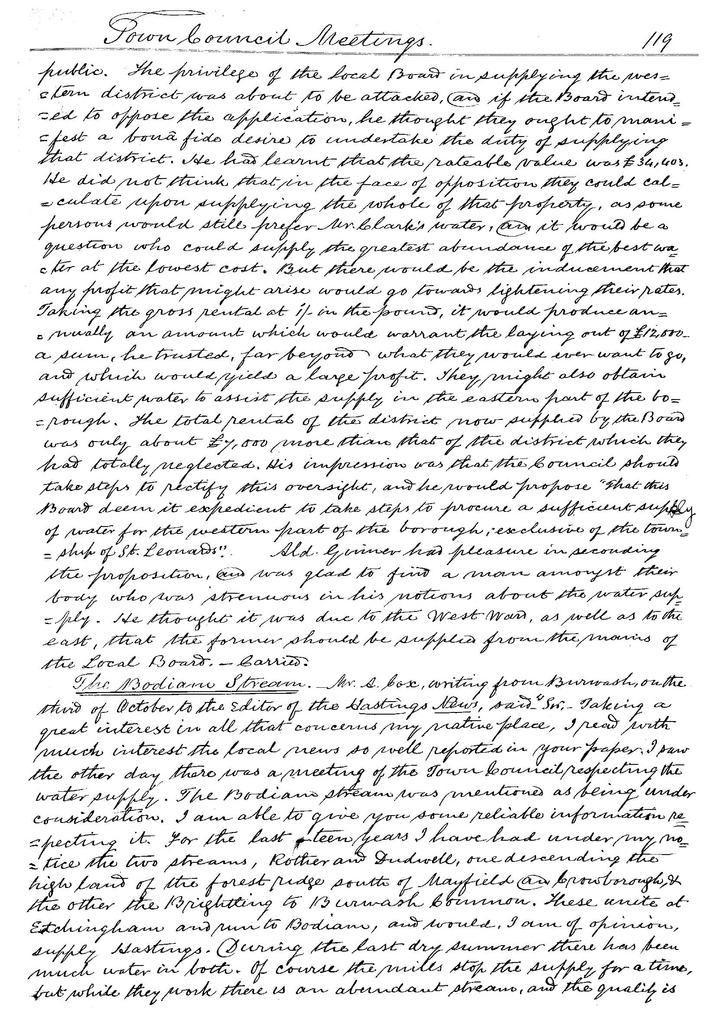 Town Council Meetings. 119
public. The privilege of the local Board in supplying the wes=
=tern district was about to be attacked, and if the Board intend=
=ed to oppose the application, he thought they ought to mani=
=fest a bonâ fide desire to undertake the duty of supplying
that district. He had learnt that the rateable value was £34,403.
He did not think that, in the face of opposition they could cal=
=culate upon supplying the whole of that property, as some
persons would still prefer Mr. Clark's water, and it would be a
question who could supply the greatest abundance of the best wa=
=ter at the lowest cost. But there would be the inducement that
any profit that might arise would go towards lightening their rates.
Taking the gross rental at 1/- in the pound, it would produce an=
=nually an amount which would warrant the laying out of £12,000–
a sum, he trusted, far beyond what they would ever want to go,
and which would yield a large profit. They might also obtain
sufficient water to assist the supply in the eastern part of the bo=
=rough. The total rental of the district now supplied by the Board
was only about £7,000 more than that of the district which they
had totally neglected. His impression was that the Council should
take steps to rectify this oversight, and he would propose "That this
Board deem it expedient to take steps to procure a sufficient supply
of water for the western part of the borough, exclusive of the town=
=ship of St. Leonards". Ald. Ginner had pleasure in seconding
the proposition, and was glad to find a man amongst their
body who was strenuous in his notions about the water sup=
=ply. He thought it was due to the West Ward, as well as to the
east, that the former should be supplied from the mains of
the Local Board. – Carried.
The Bodiam Stream. – Mr. S. Cox, writing from Burwash, on the
third of October to the Editor of the Hastings News, said "Sir,– Taking a
great interest in all that concerns my native place, I read with
much interest the local news so well reported in your paper. I saw
the other day there was a meeting of the Town Council respecting the
water supply. The Bodiam stream was mentioned as being under
consideration. I am able to give you some reliable information re=
=specting it. For the last teen years I have had under my no=
=tice the two streams, Rother and Dudwell, one descending the
high land of the forest ridge south of Mayfield and Crowborough, &
the other the Brightling to Burwash Common. These unite at
Etchingham and run to Bodiam, and would, I am of opinion,
supply Hastings. During the last dry summer there has been
much water in both. Of course the miles stop the supply for a time,
but while they work there is an abundant stream, and the quality is